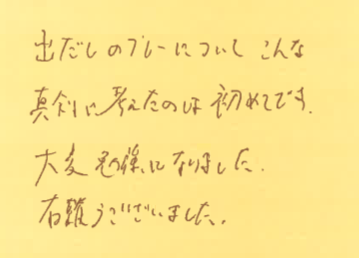 出だしのプレーについて こんな
真剣に考えたのは 初めてです.
大変勉強になりました.
有難うございました.